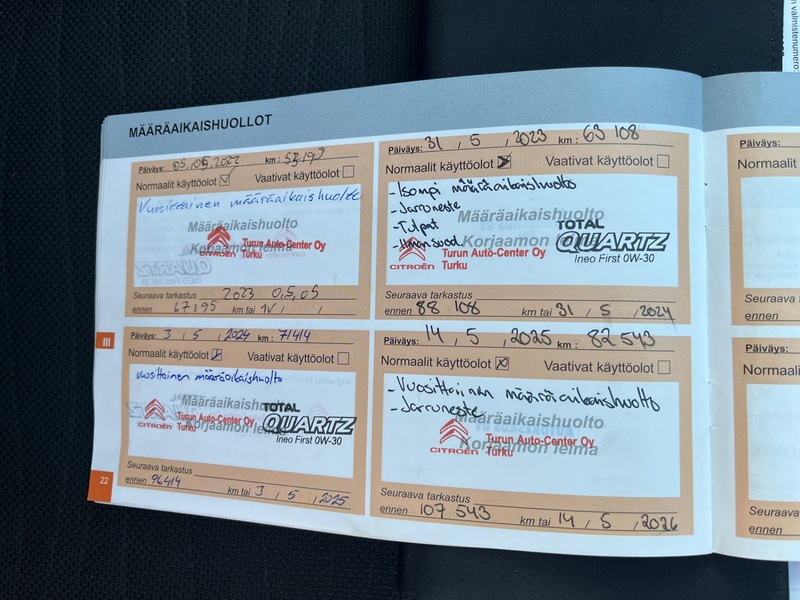 n valmistenumero:
MÄÄRÄAIKAISHUOLLOT
Päiväys: 05,05,2022 km: 53199
Normaalit käyttöolot Vaativat käyttöolot
Vuosittainen määräaikaishuolto
Määräaikaishuolto
Korjaamon leima
CITROËN
Turun Auto-Center Oy
Turku
Seuraava tarkastus 2023 05,05
ennen 67195 km tai 1V / /
Päiväys: 31, 5, 2023 km: 63 108
Normaalit käyttöolot Vaativat käyttöolot
-Isompi määräaikaishuolto
-Jarruneste
-Tulpat
-Ilman suod.
Määräaikaishuolto
Korjaamon
CITROËN
Turun Auto-Center Oy
Turku
TOTAL
QUARTZ
Ineo First 0W-30
Seuraava tarkastus
ennen 88 108 km tai 31, 5, 2024
III
Päiväys: 3, 5, 2024 km: 71414
Normaalit käyttöolot Vaativat käyttöolot
vuosittainen määräaikaishuolto
Määräaikaishuolto
Korjaamon leima
CITROËN
Turun Auto-Center Oy
Turku
TOTAL
QUARTZ
Ineo First 0W-30
Seuraava tarkastus
ennen 96414 km tai 3, 5, 2025
Päiväys: 14, 5, 2025 km: 82 543
Normaalit käyttöolot Vaativat käyttöolot
-Vuosittainen määräaikaishuolto
-Jarruneste
Määräaikaishuolto
Korjaamon leima
CITROËN
Turun Auto-Center Oy
Turku
Seuraava tarkastus
ennen 107 543 km tai 14, 5, 2026
22
Päiväys:
Normaali
Seuraava
ennen
Päiväys:
Normaal
Seuraava
ennen